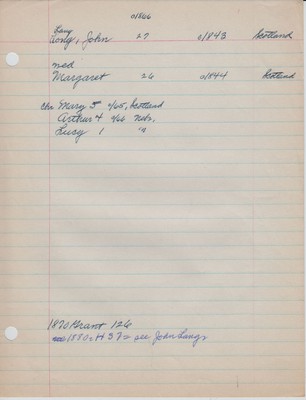 c1866
Lang
John 27 c1843 Scotland
med
Margaret 26 c1844 Scotland
chr Mary 5 c/65, Scotland
Arthur 4 c/66 Nebr,
Lucy 1 "
1870 Grant 126
1880 H 37 see John Lang